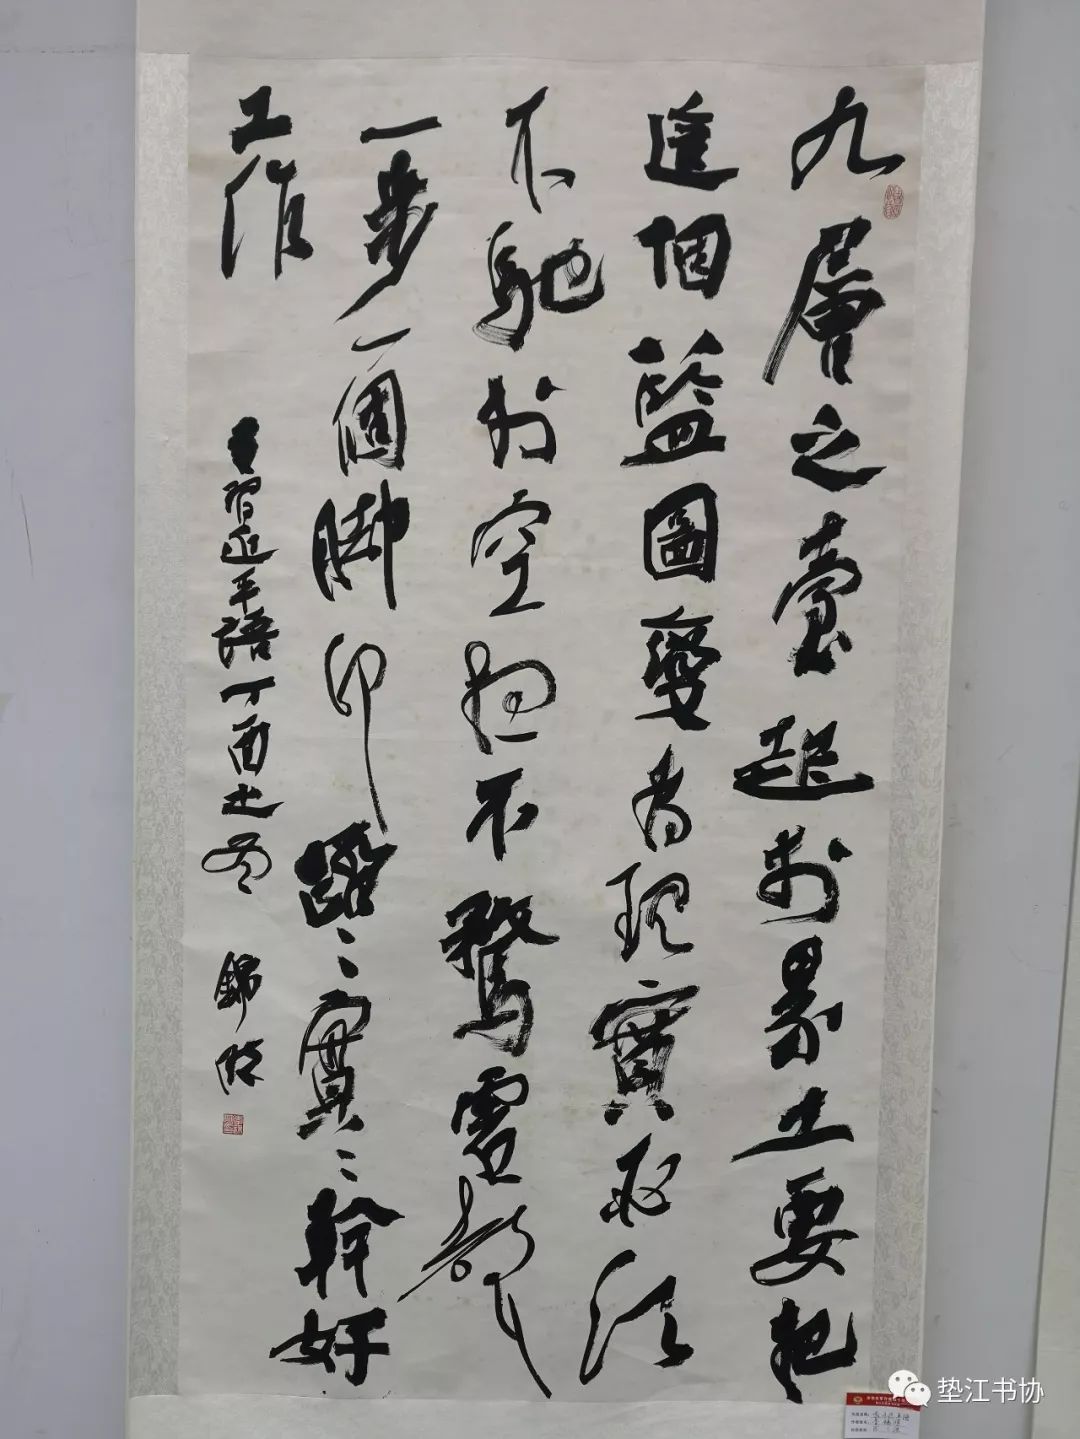 九層之臺起於累土要把
這個藍圖變為現實必須
不馳於空想不騖虛聲
一步一個腳印踏々實々幹好
工作
書習近平語丁酉之冬 錦
垫江书协